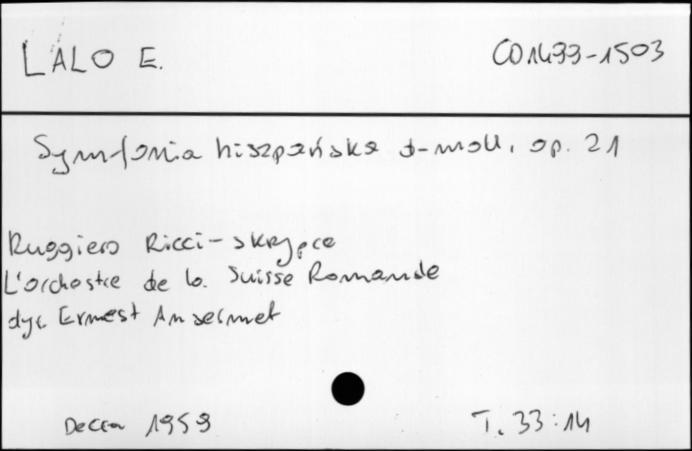 LALO E. CD1499-1503
Symfonia hiszpańska d-moll, op. 21
Ruggiero Ricci - skrzypce
L'orchestre de la Suisse Romande
dyr Ernest Ansermet
Decca 1959 T. 33:14